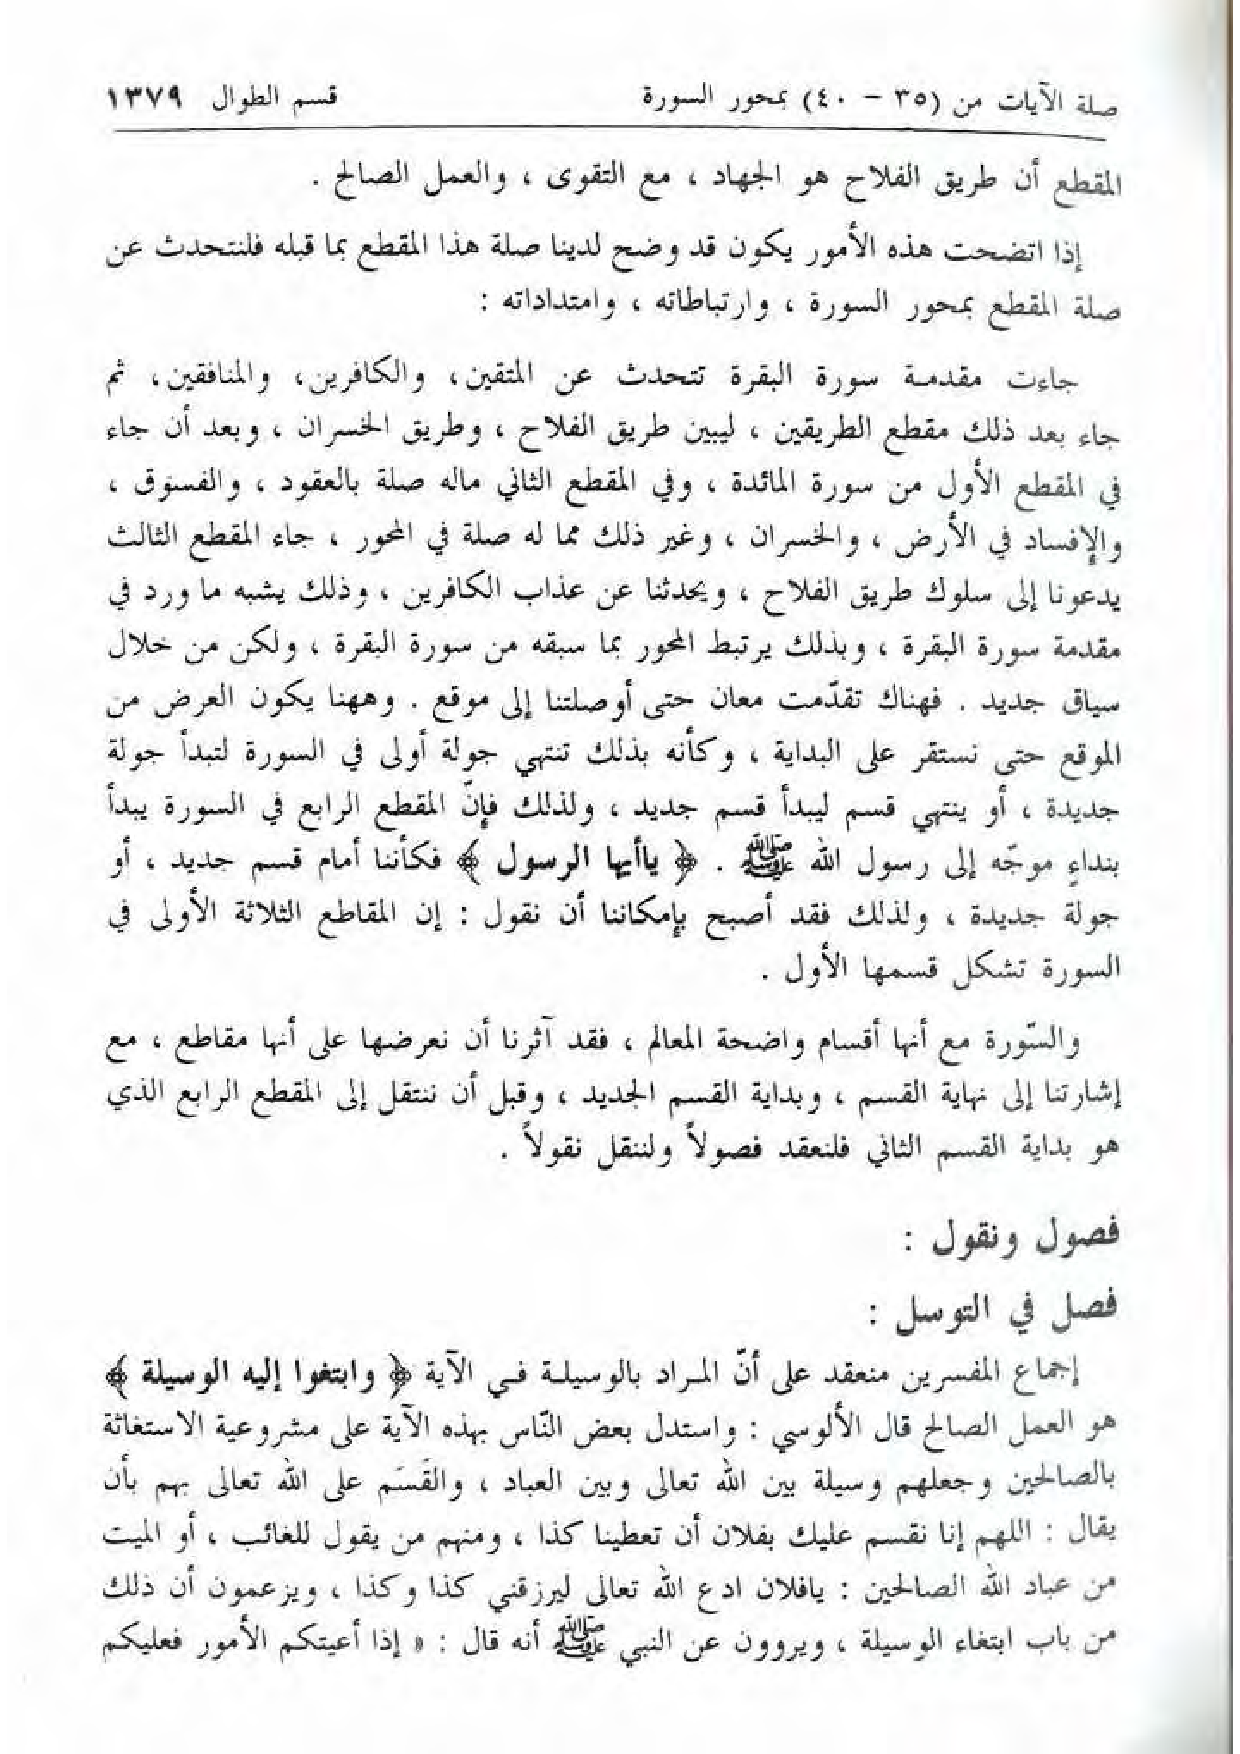 صلة الآيات من (٣٥ - ٤٠) بمحور السورة قسم الطوال ١٣٧٩
المقطع أن طريق الفلاح هو الجهاد ، مع التقوى ، والعمل الصالح .
إذا اتضحت هذه الأمور يكون قد وضح لدينا صلة هذا المقطع بما قبله فلنتحدث عن
صلة المقطع بمحور السورة ، وارتباطاته ، وامتداداته :
جاءت مقدمة سورة البقرة تتحدث عن المتقين، والكافرين، والمنافقين، ثم
جاء بعد ذلك مقطع الطريقين ، ليبين طريق الفلاح ، وطريق الخسران ، وبعد أن جاء
في المقطع الأول من سورة المائدة ، وفي المقطع الثاني ماله صلة بالعقود ، والفسوق ،
والإفساد في الأرض ، والخسران ، وغير ذلك مما له صلة في المحور ، جاء المقطع الثالث
يدعونا إلى سلوك طريق الفلاح ، ويحدثنا عن عذاب الكافرين ، وذلك يشبه ما ورد في
مقدمة سورة البقرة ، وبذلك يرتبط المحور بما سبقه من سورة البقرة ، ولكن من خلال
سياق جديد . فهناك تقدّمت معان حتى أوصلتنا إلى موقع . وههنا يكون العرض من
الموقع حتى نستقر على البداية ، وكأنه بذلك تنتهي جولة أولى في السورة لتبدأ جولة
جديدة ، أو ينتهي قسم ليبدأ قسم جديد ، ولذلك فإنّ المقطع الرابع في السورة يبدأ
بنداءٍ موجّه إلى رسول الله ﷺ . ﴿ ياأيها الرسول ﴾ فكأننا أمام قسم جديد ، أو
جولة جديدة ، ولذلك فقد أصبح بإمكاننا أن نقول : إن المقاطع الثلاثة الأولى في
السورة تشكل قسمها الأول .
والسّورة مع أنها أقسام واضحة المعالم ، فقد آثرنا أن نعرضها على أنها مقاطع ، مع
إشارتنا إلى نهاية القسم ، وبداية القسم الجديد ، وقبل أن ننتقل إلى المقطع الرابع الذي
هو بداية القسم الثاني فلنعقد فصولاً ولننقل نقولاً .
فصول ونقول :
فصل في التوسل :
إجماع المفسرين منعقد على أنّ المراد بالوسيلة في الآية ﴿ وابتغوا إليه الوسيلة ﴾
هو العمل الصالح قال الألوسي : واستدل بعض النّاس بهذه الآية على مشروعية الاستغاثة
بالصالحين وجعلهم وسيلة بين الله تعالى وبين العباد ، والقَسَم على الله تعالى بهم بأن
يقال : اللهم إنا نقسم عليك بفلان أن تعطينا كذا ، ومنهم من يقول للغائب ، أو الميت
من عباد الله الصالحين : يافلان ادع الله تعالى ليرزقني كذا وكذا ، ويزعمون أن ذلك
من باب ابتغاء الوسيلة ، ويروون عن النبي ﷺ أنه قال : « إذا أعيتكم الأمور فعليكم